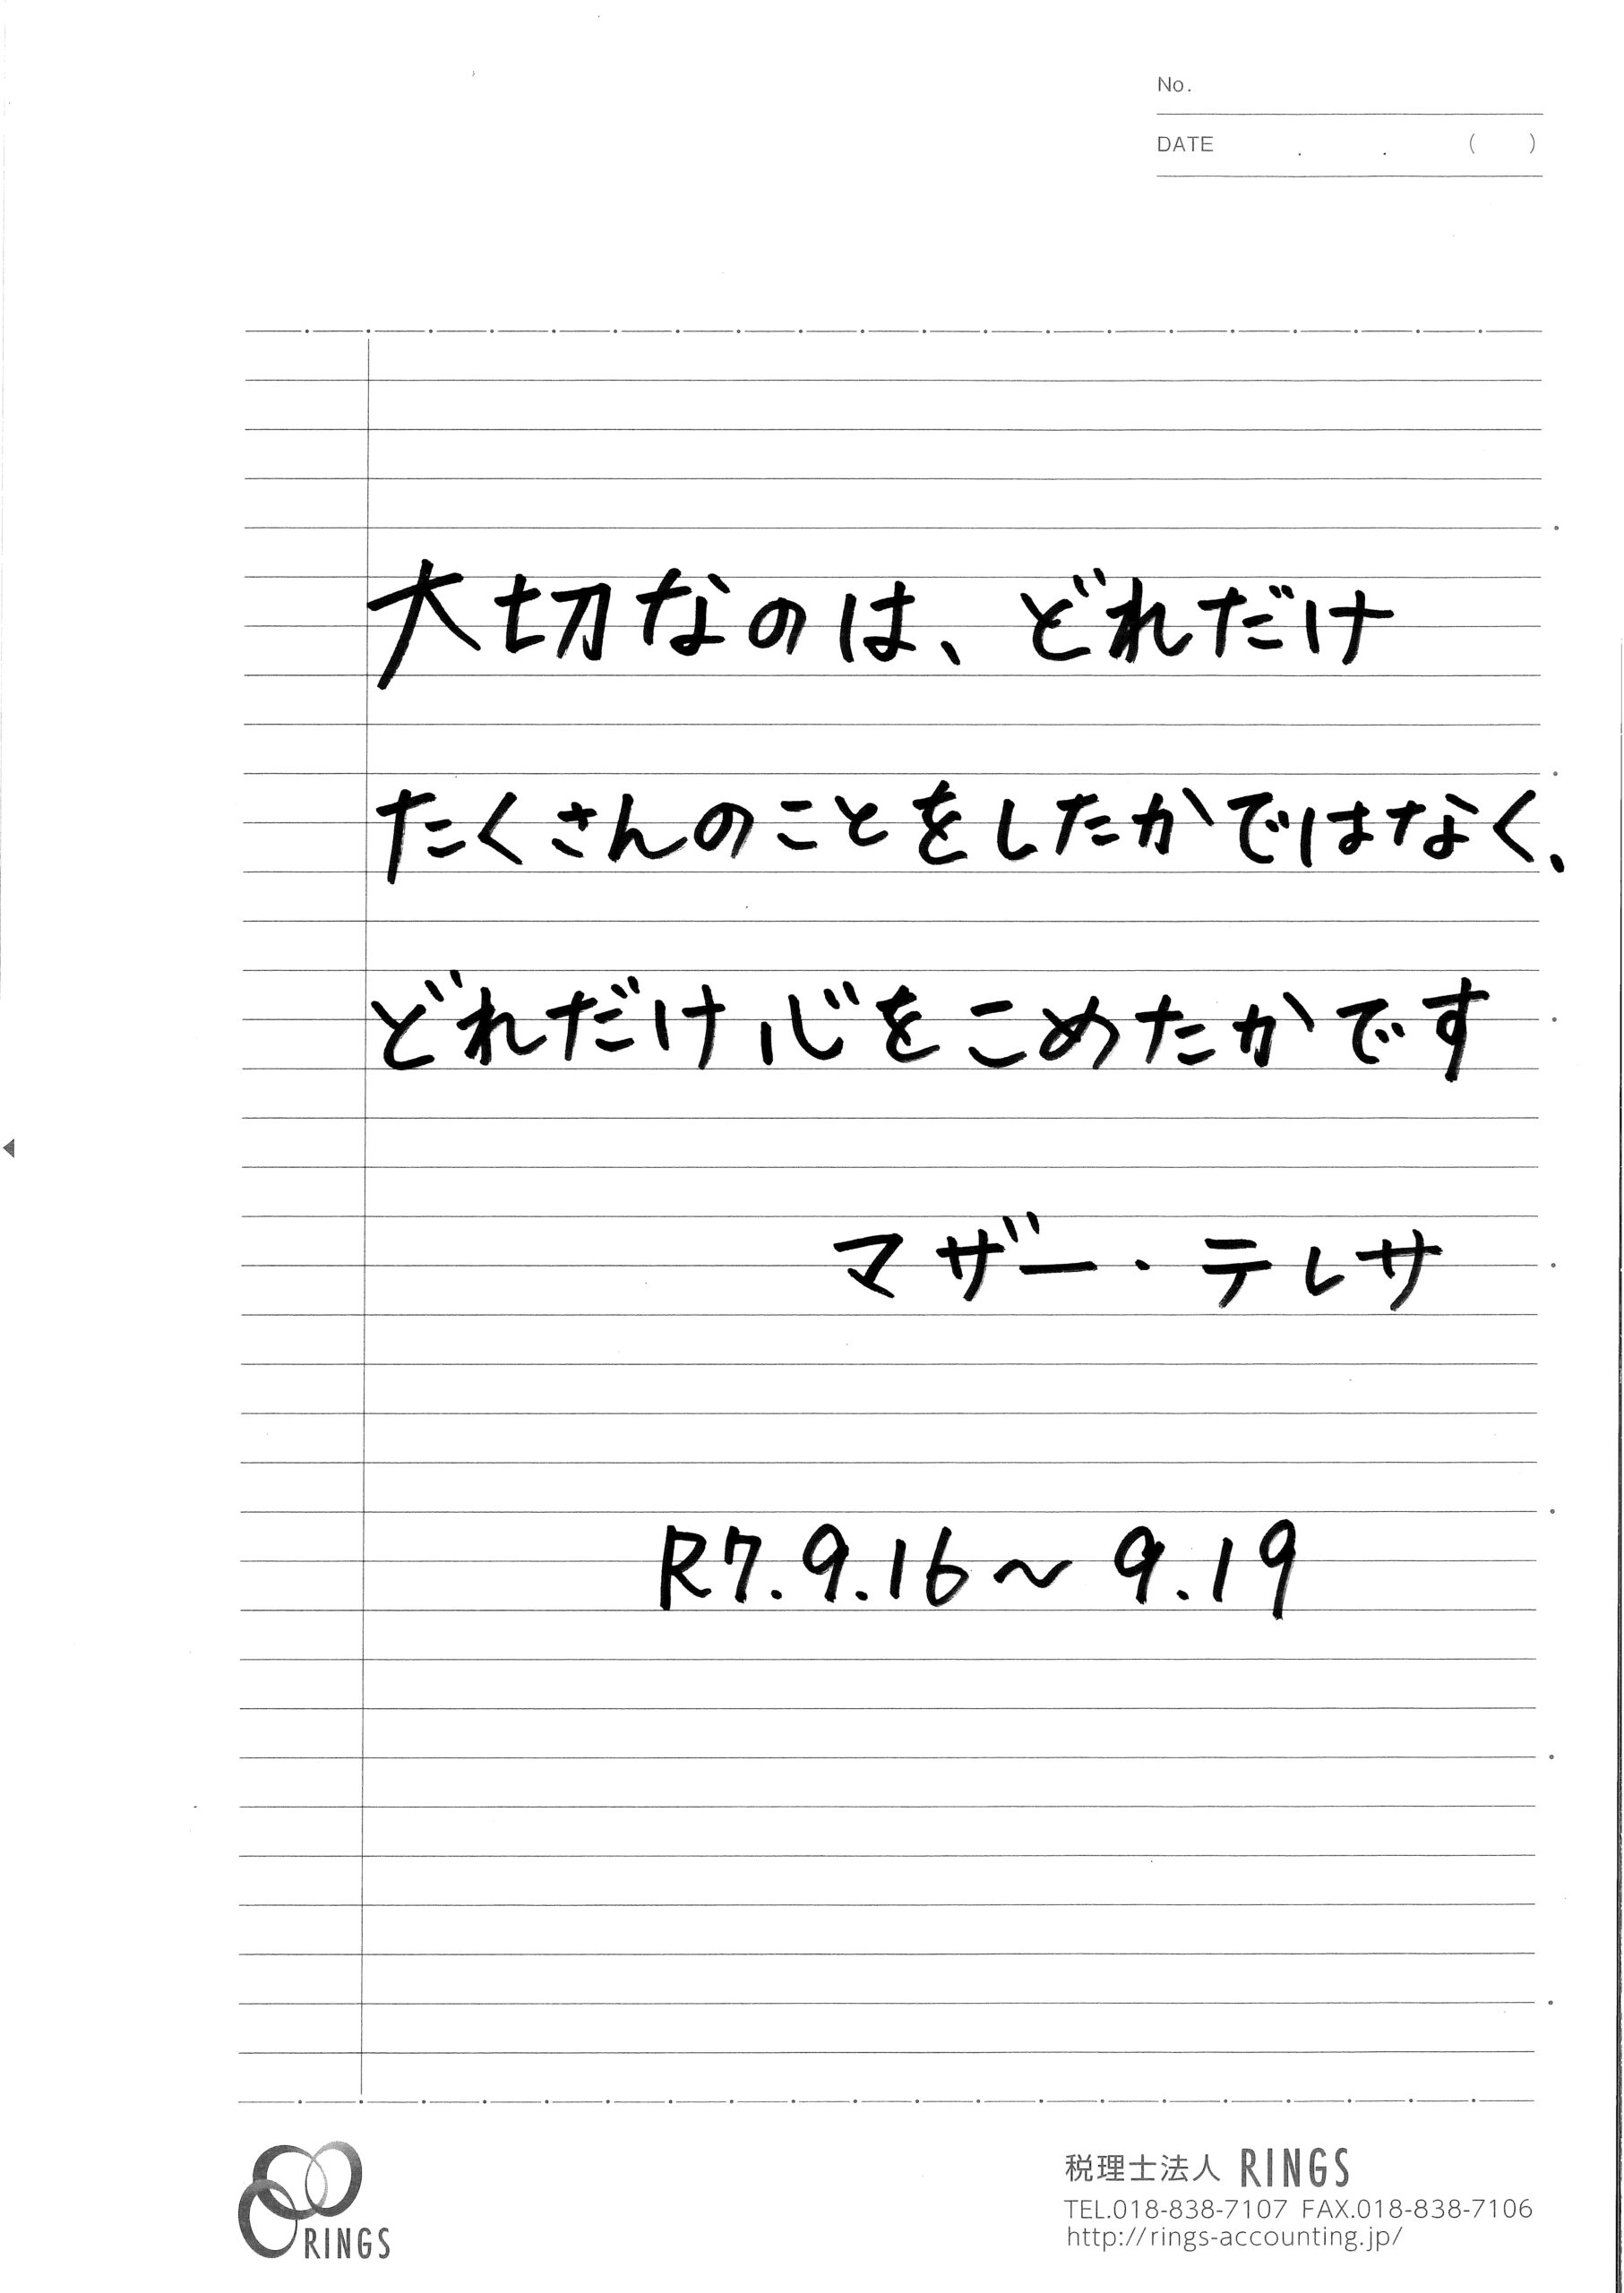 No.
DATE . . ( )
大切なのは、どれだけ
たくさんのことをしたかではなく、
どれだけ心をこめたかです
マザー・テレサ
R7.9.16～9.19
RINGS
税理士法人 RINGS
TEL.018-838-7107 FAX.018-838-7106
http://rings-accounting.jp/